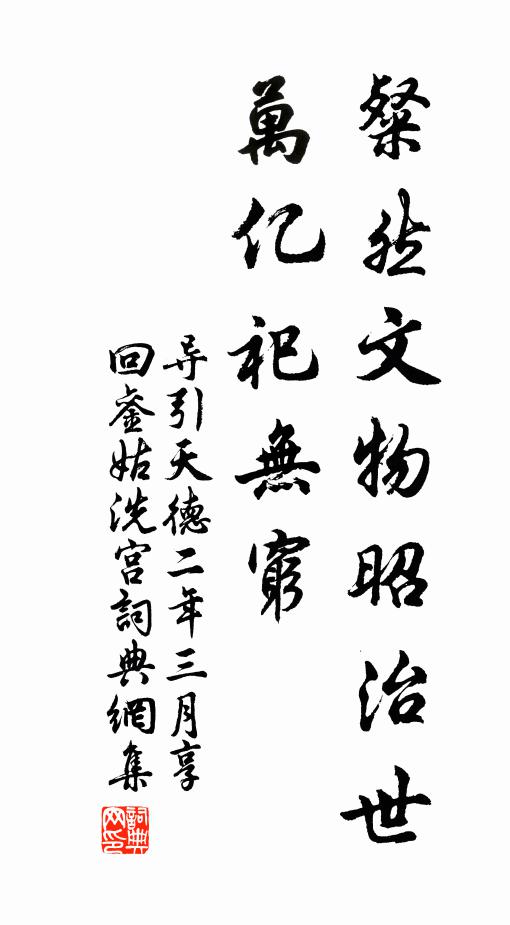 粲然文物昭治世
萬亿祀無窮
导引天德二年三月享
回銮姑洗宫詞典網集
詞典网印